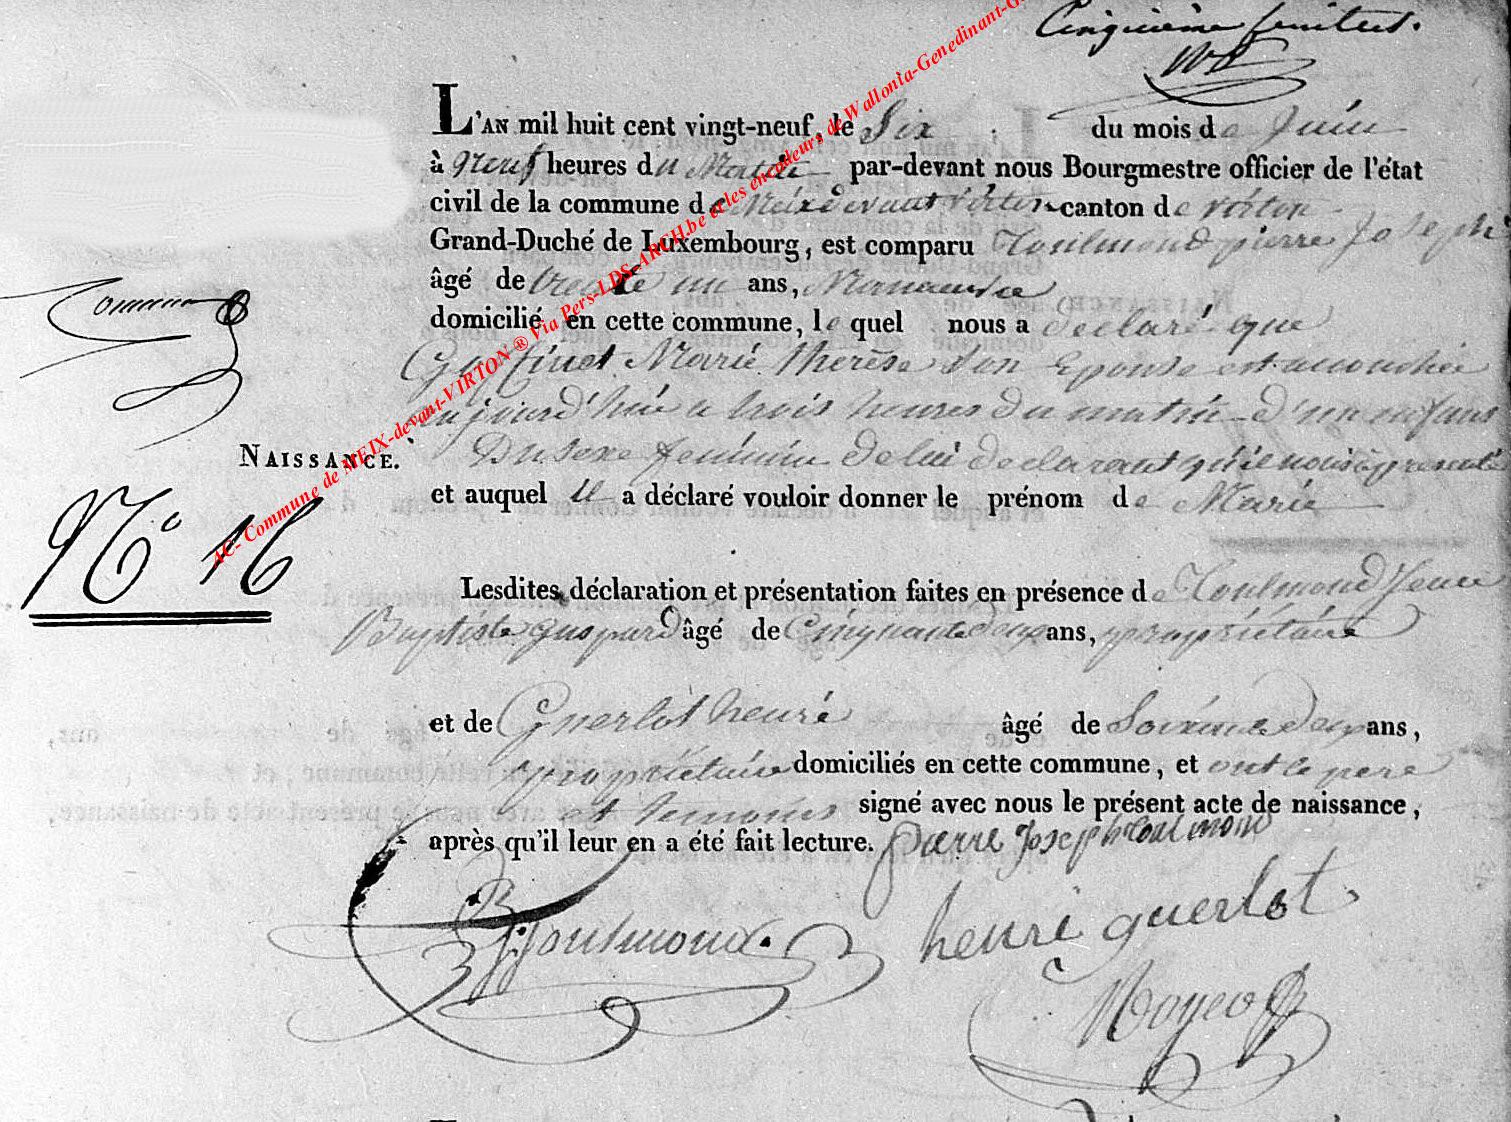 Cinquième feuillet.
L'AN mil huit cent vingt-neuf, le Six du mois de Juin
à neuf heures du Matin par-devant nous Bourgmestre officier de l'état
civil de la commune de Meix devant virton canton de virton
Grand-Duché de Luxembourg, est comparu Toulmond pierre Joseph
âgé de trente un ans, Manœuvre
domicilié en cette commune, le quel nous a déclaré que
Goffinet Marie therèse son Epouse est accouchée
aujourd'hui a trois heures du matin d'un enfant
NAISSANCE.
Du sexe feminin de lui declarant qu'il nous a presenté
et auquel il a déclaré vouloir donner le prénom de Marie
N° 16
Lesdites déclaration et présentation faites en présence de Toulmond Jean
Baptiste gaspard âgé de Cinquante deux ans, propriétaire
et de Guerlot henri âgé de Soixante deux ans,
propriétaire domiciliés en cette commune, et ont le pere
et temoins signé avec nous le présent acte de naissance,
après qu'il leur en a été fait lecture. pierre Joseph toulmond
Toulmond.
henri guerlot
AC- Commune de MEIX-devant-VIRTON ® Via Pers-LDS-ARCH.be et les encodeurs de Wallonia-Genedinant-G